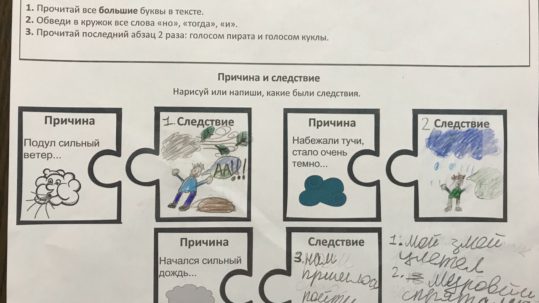 1. Прочитай все большие буквы в тексте.
2. Обведи в кружок все слова «но», «тогда», «и».
3. Прочитай последний абзац 2 раза: голосом пирата и голосом куклы.
Причина и следствие
Нарисуй или напиши, какие были следствия.
Причина
Подул сильный
ветер...
1. Следствие
АА!!!
Причина
Набежали тучи,
стало очень
темно...
2 Следствие
Причина
Начался сильный
дождь...
Следствие
3. нам
пришлось
пойти
1. мой змей
улетел
2.